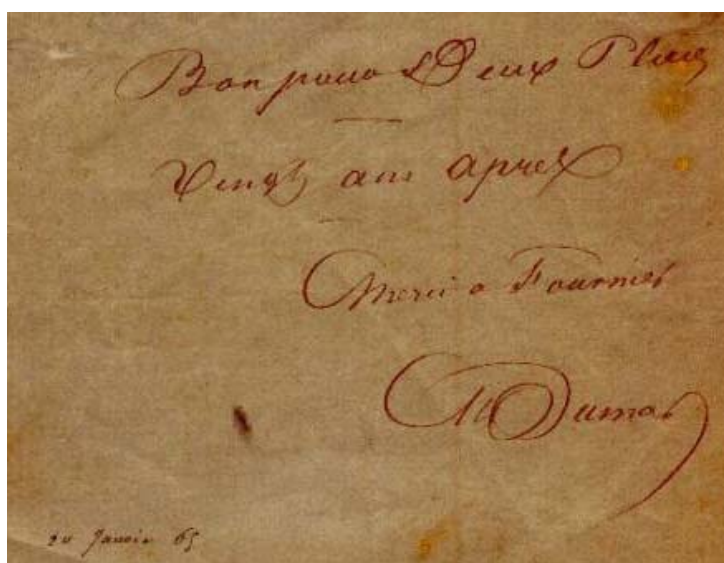 Bon pour Deux Places
Vingt ans après
Merci a Fournier
Al Dumas
20 Janvier 65